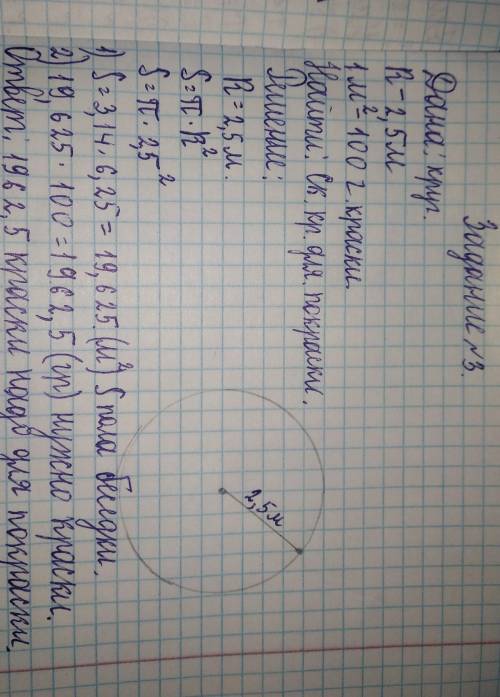 Задание №3.
Дано: круг.
R - 2,5 м
1 м² - 100 г. краски.
Найти: Ск. кр. для. покраски.
Решение:
R = 2,5 м.
S = π · R²
S = π · 2,5²
1) S = 3,14 · 6,25 = 19,625 (м²) S пола беседки.
2) 19,625 · 100 = 1962,5 (гр) нужно краски.
Ответ: 1962,5 краски надо для покраски.
2,5 м